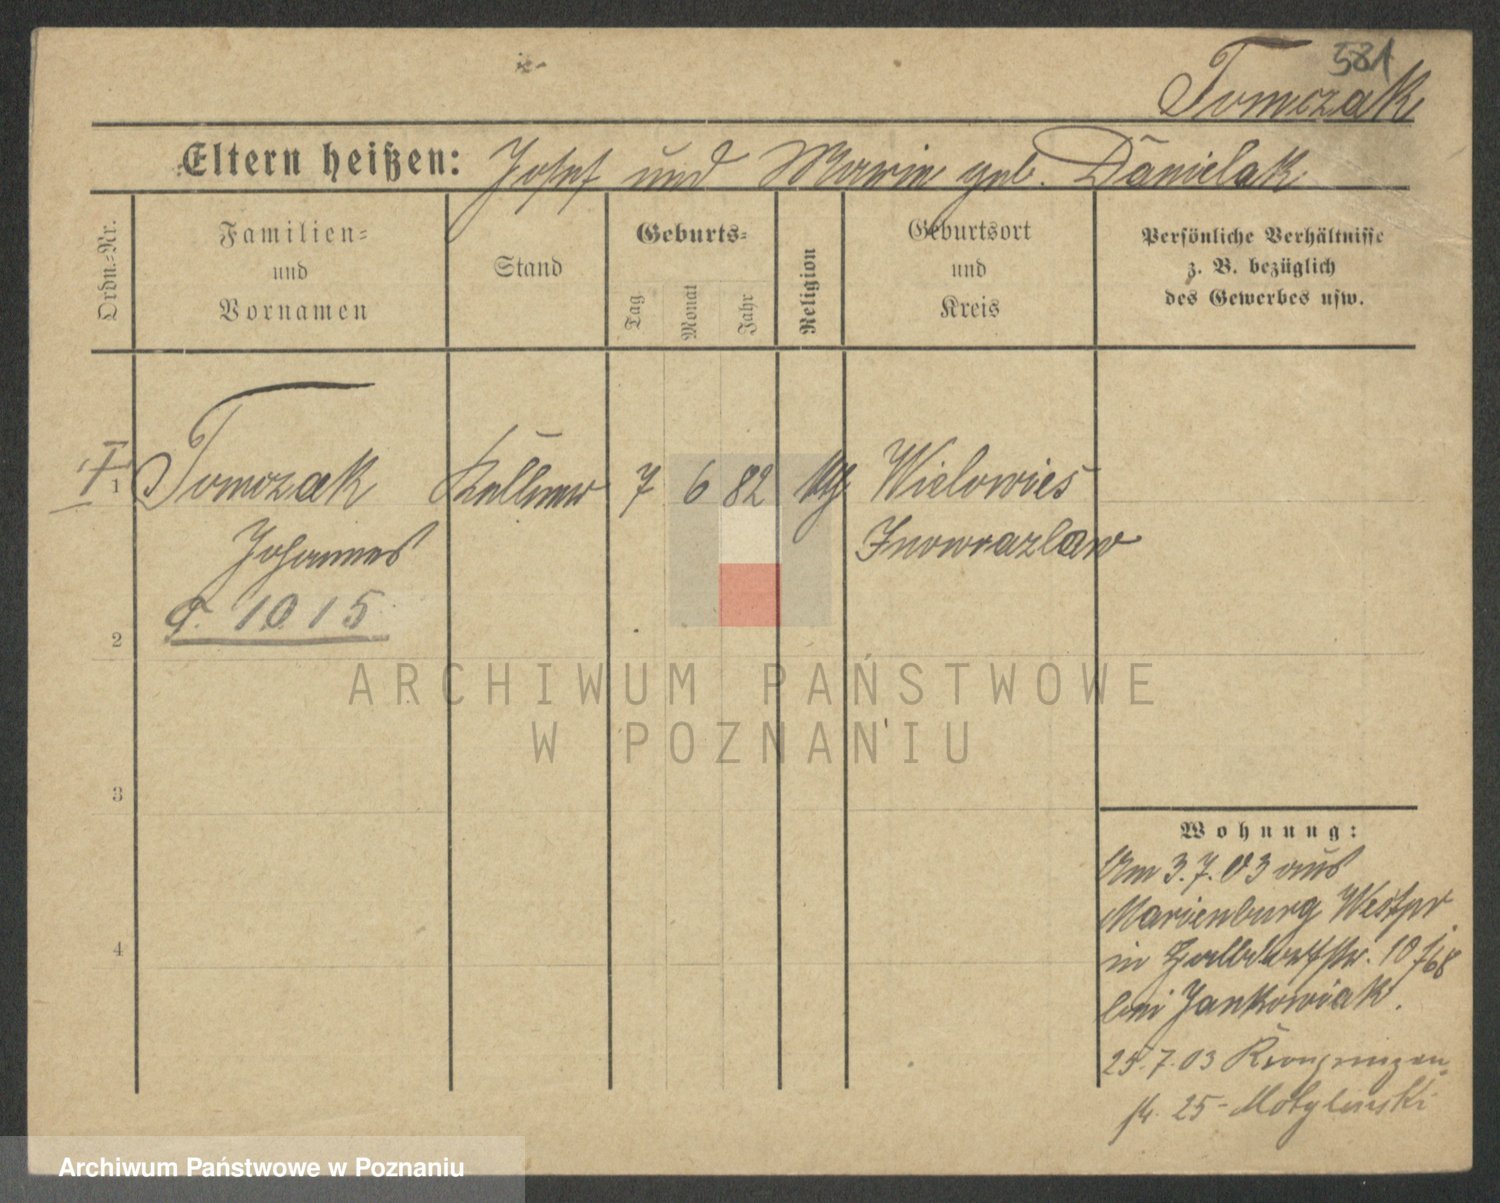 581
Tomczak
Eltern heißen: Josef und Marie geb. Danielak
Ordn.-Nr.
Familien-
und
Vornamen
Stand
Geburts-
Tag
Monat
Jahr
Religion
Geburtsort
und
Kreis
Persönliche Verhältnisse
z. B. bezüglich
des Gewerbes usw.
I
1
Tomczak Kellner 7 6 82 Wielowies
Johannes Inowrazlaw
1015
2
3
4
Wohnung:
Am 3.7.03 aus
Marienburg Westpr
in Halbdorfstr. 10
bei Jankowiak.
25.7.03 Kronprinzen-
str. 25 - Motylewski
ARCHIWUM PAŃSTWOWE
W POZNANIU
Archiwum Państwowe w Poznaniu